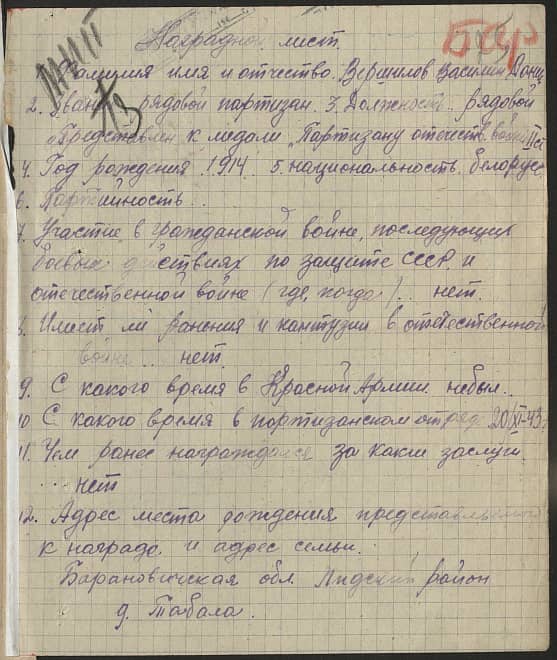 Наградной лист.
БССР
Фамилия имя и отчество. Вершилов Василий
2. Звание рядовой партизан. 3. Должность.. рядовой
Представлен к медали „Партизану отечеств. войны" II ст
4. Год рождения 1914. 5. национальность. белорусс
6. Партийность..
7. Участие в гражданской войне, последующих
боевых действиях по защите СССР и
отечественной войне (где, когда)... нет.
8. Имеет ли ранения и кантузии в отечественной
войне... нет.
9. С какого время в Красной Армии. небыл..
10 С какого время в портизанском отряде 20/XI-43
11. Чем ранее награждался за какие заслуги
... нет
12. Адрес места рождения представляемого
к награде. и адрес семьи.
Барановическая обл. Лидский район
д. Табала.